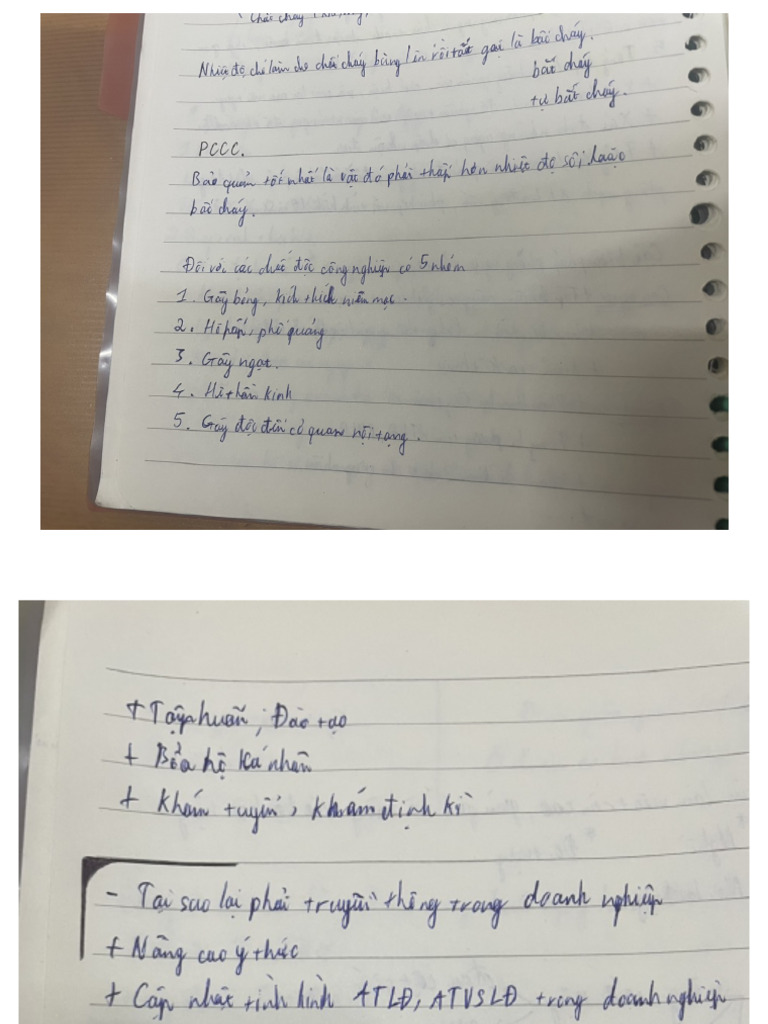 Nhiệt độ chỉ làm cho chất cháy bùng lên rồi tắt gọi là bốc cháy.
bắt cháy
tự bắt cháy.
PCCC.
Bảo quản tốt nhất là vật đó phải thấp hơn nhiệt độ sôi,
bốc cháy.
Đối với các chất độc công nghiệp có 5 nhóm
1. Gây bỏng, kích thích niêm mạc.
2. Hô hấp, phế quảng
3. Gây ngạt.
4. Hệ thần kinh
5. Gây độc đến cơ quan nội tạng.
+ Tập huấn, Đào tạo
+ Bảo hộ Ká nhân
+ Khám tuyển, Khám định kì
- Tại sao lại phải truyền thông trong doanh nghiệp
+ Nâng cao ý thức
+ Cập nhật tình hình ATLĐ, ATVSLĐ trong doanh nghiệp